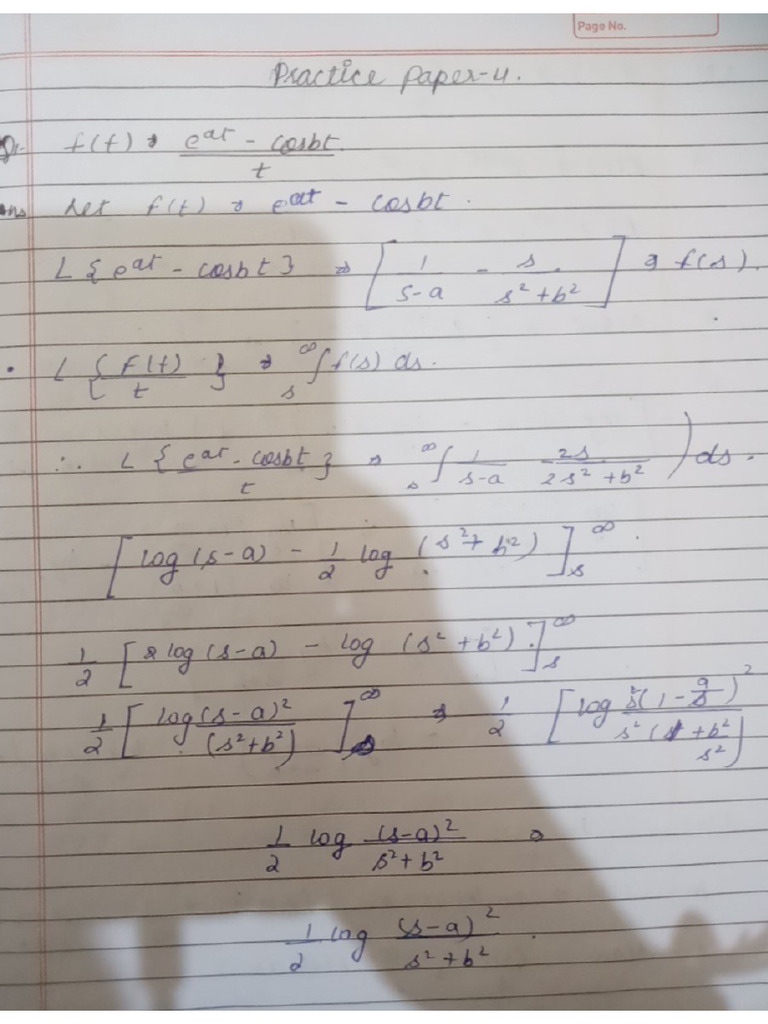 Page No.
Practice Paper-4.
Q1. f(t) ⇒ (e^at - cosbt)/t
Ans Let f(t) ⇒ e^at - cosbt.
L{e^at - cosbt} ⇒ [1/(s-a) - s/(s²+b²)] ⇒ f(s).
• L{F(t)/t} ⇒ ∞∫s f(s) ds.
∴ L{(e^at - cosbt)/t} ⇒ ∞∫s (1/(s-a) 2s/(2s²+b²)) ds.
[log(s-a) - 1/2 log(s²+b²)]s^∞.
1/2 [2log(s-a) - log(s²+b²)]s^∞
1/2 [log(s-a)²/(s²+b²)]s^∞ ⇒ 1/2 [log s²(1-a/s)²/s²(1+b²/s²)]
1/2 log (s-a)²/(s²+b²) ⇒
1/2 log (s-a)²/(s²+b²).